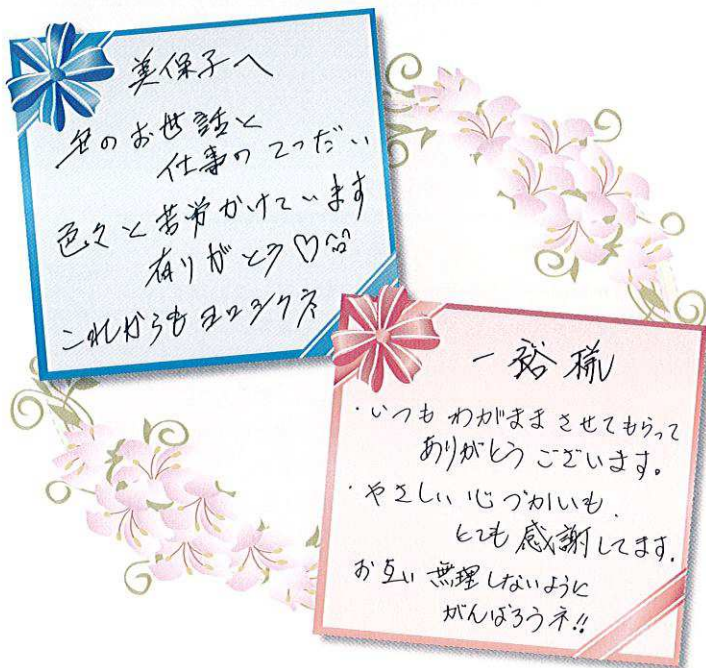 美保子へ
のお世話と
仕事のてつだい
色々と苦労かけています
有りがとう♡
これからもヨロシクネ
一裕様
・いつもわがままさせてもらって
ありがとうございます。
・やさしい心づかいも、
とても感謝してます。
お互い無理しないように
がんばろうネ!!